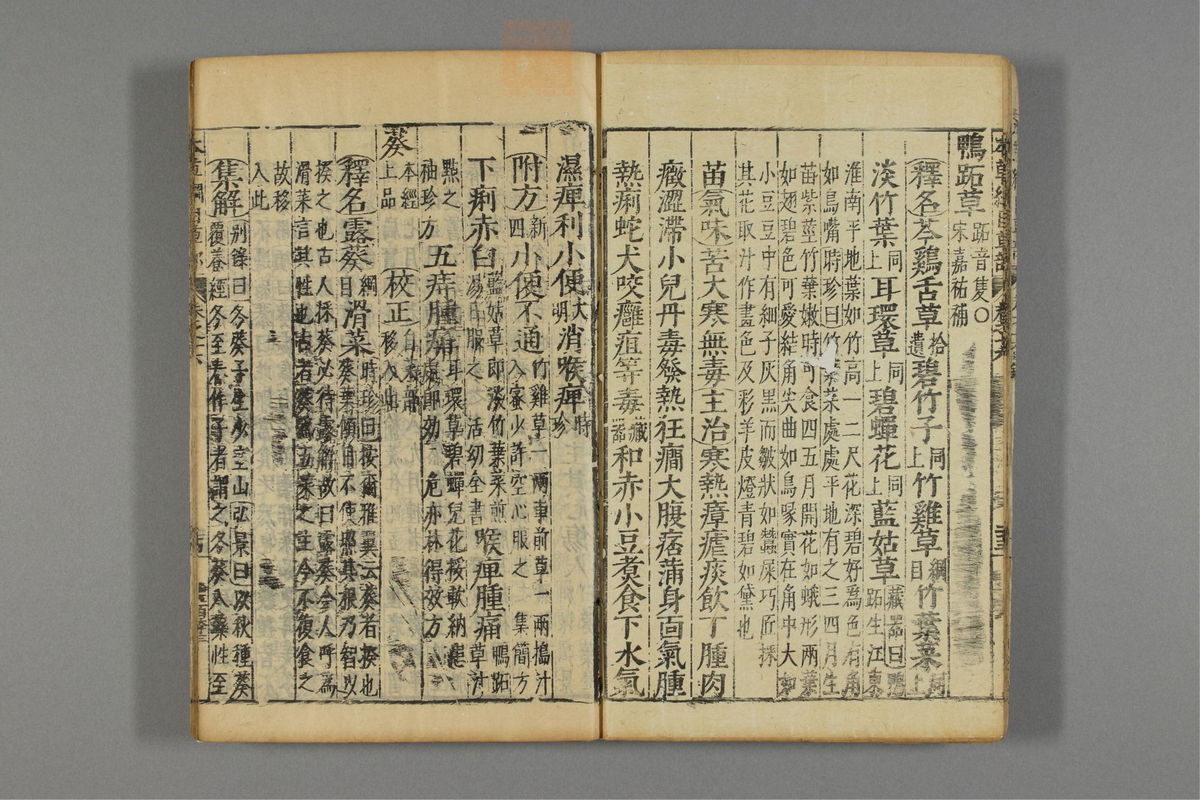 鴨跖草 跖音隻〇
宋嘉祐補
釋名鷄舌草拾遺碧竹子同上竹雞草綱目竹葉菜同上
淡竹葉同上耳環草同上碧蟬花同上藍姑草藏器曰鴨跖生江東
淮南平地葉如竹高一二尺花深碧好爲色有角
如鳥嘴時珍曰竹葉菜處處平地有之三四月生
苗紫莖竹葉嫩時可食四五月開花如蛾形兩葉
如翅碧色可愛結角尖曲如鳥喙實在角中大如
小豆豆中有細子灰黑而皺狀如蠶屎巧匠採
其花取汁作畫色及彩羊皮燈青碧如黛也
苗氣味苦大寒無毒主治寒熱瘴瘧痰飲丁腫肉
癥澀滯小兒丹毒發熱狂癇大腹痞滿身面氣腫
熱痢蛇犬咬癰疽等毒藏器和赤小豆煮食下水氣
濕痺利小便大明消喉痺時珍
附方新四小便不通竹雞草一兩車前草一兩搗汁入蜜少許空心服之 集簡方
下痢赤白藍姑草即淡竹葉菜煎湯日服之 活幼全書喉痺腫痛鴨跖草汁
點之袖珍方五痔腫痛耳環草碧蟬兒花挼軟納患處即効 危亦林得效方
葵本經上品 校正自菜部移入此
釋名露葵綱目滑菜時珍曰按爾雅翼云葵者揆也
葵葉傾日不使照其根乃智以
揆之也古人採葵必待露解故曰露葵今人呼爲
滑菜言其性也古者葵爲五菜之主今不復食之
故移
入此
集解别錄曰冬葵子生少室山弘景曰以秋種葵
覆養經冬至春作子者謂之冬葵入藥性至